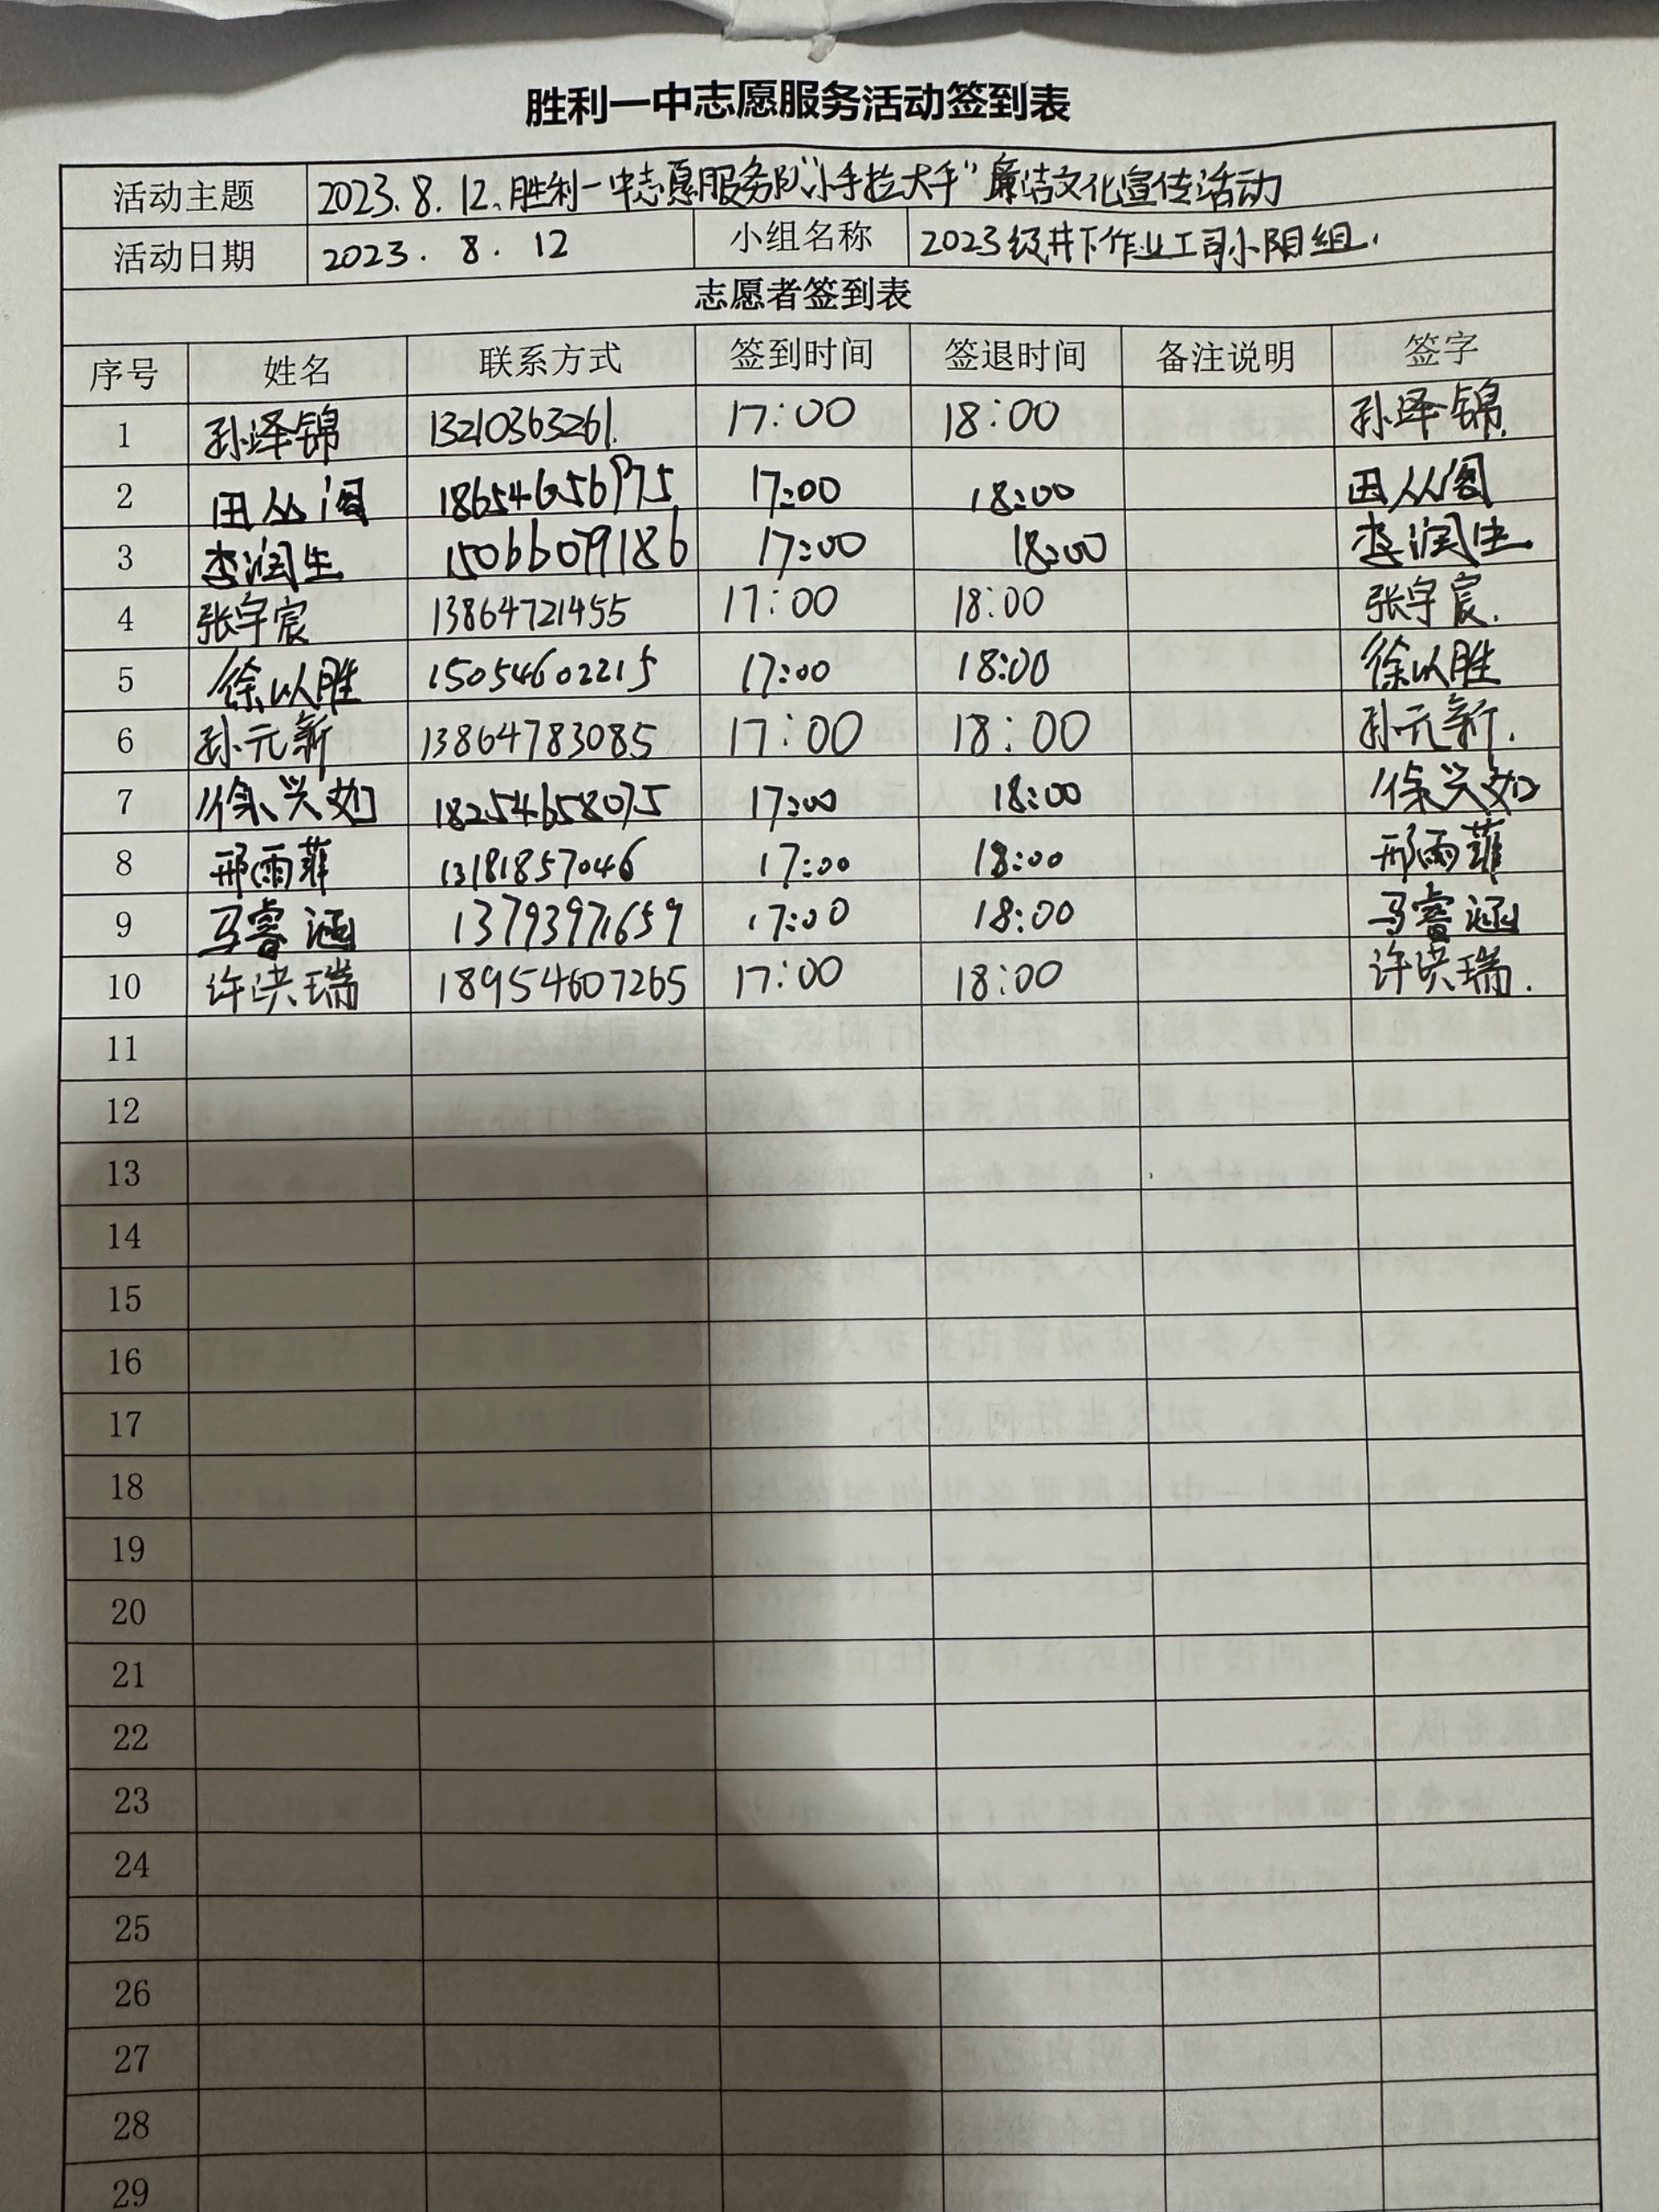 胜利一中志愿服务活动签到表
活动主题 2023.8.12.胜利一中志愿服务队“小手拉大手”廉洁文化宣传活动
活动日期 2023.8.12 小组名称 2023级井下作业工司小阳组.
志愿者签到表
序号 姓名 联系方式 签到时间 签退时间 备注说明 签字
1 孙泽锦 13210363261. 17:00 18:00 孙泽锦.
2 田丛阁 17:00 18:00 田丛阁
3 李润生 15066079186 17:00 18:00 李润生
4 张宇宸 13864721455 17:00 18:00 张宇宸.
5 徐以胜 15054602215 17:00 18:00 徐以胜
6 孙元新 13864783085 17:00 18:00 孙元新.
7 徐兴如 18254658075 17:00 18:00 徐兴如
8 邢雨菲 13181857046 17:00 18:00 邢雨菲
9 马睿涵 13793971659 17:00 18:00 马睿涵
10 许洪瑞 18954607265 17:00 18:00 许洪瑞.
11
12
13
14
15
16
17
18
19
20
21
22
23
24
25
26
27
28
29